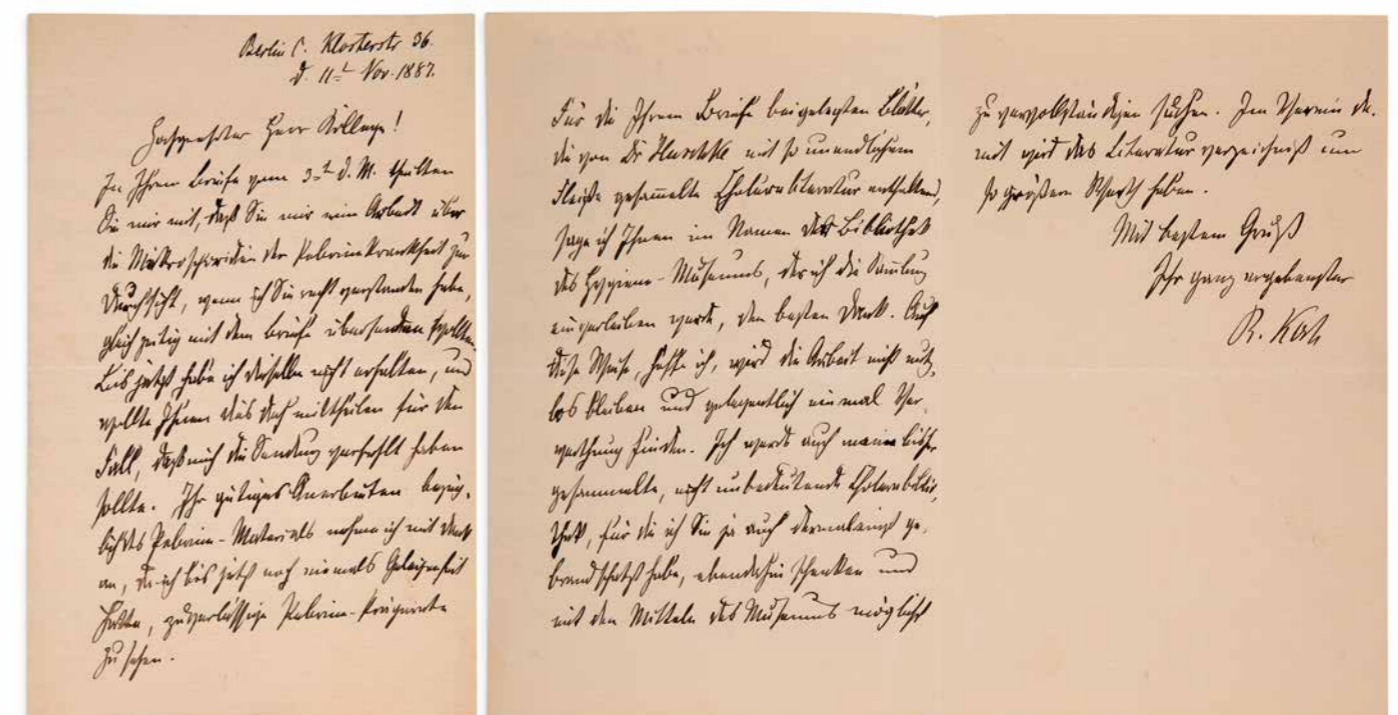 Berlin C. Klosterstr 36.
d. 11t Nov. 1887.
Hochgeehrter Herr Kollege!
In Ihrem Briefe vom 3t d. M. theilten
Sie mir mit, daß Sie mir eine Arbeit über
die Mikrosporidien der Pebrinekrankheit zur
Durchsicht, wenn ich Sie recht verstanden habe,
gleichzeitig mit dem Briefe übersenden wollten.
Bis jetzt habe ich dieselbe nicht erhalten, und
wollte Ihnen dies doch mittheilen für den
Fall, daß mich die Sendung verfehlt haben
sollte. Ihr gütiges Anerbieten bezüg-
lich des Pebrine-Materials nehme ich mit Dank
an, da ich bis jetzt noch niemals Gelegenheit
hatte, zuverlässige Pebrine-Präparate
zu sehen.
Für die Ihrem Briefe beigelegten Blätter,
die von Dr Huschke mit so unendlichem
Fleiße gesammelte Choleraliteratur enthaltend,
sage ich Ihnen im Namen der Bibliothek
des Hygiene-Museums, der ich die Samlung
einverleiben werde, den besten Dank. Auf
diese Weise, hoffe ich, wird die Arbeit nicht nutz-
los bleiben und gelegentlich einmal Ver-
werthung finden. Ich werde auch meine bisher
gesammelte, nicht unbedeutende Cholerabiblio-
thek, für die ich Sie ja auch dermaleinst ge-
brandschatzt habe, ebendahin schenken und
mit den Mitteln des Museums möglichst
zu vervollständigen suchen. Im Verein da-
mit wird das Literaturverzeichniß um
so größeren Werth haben.
Mit bestem Gruß
Ihr ganz ergebenster
R. Koch